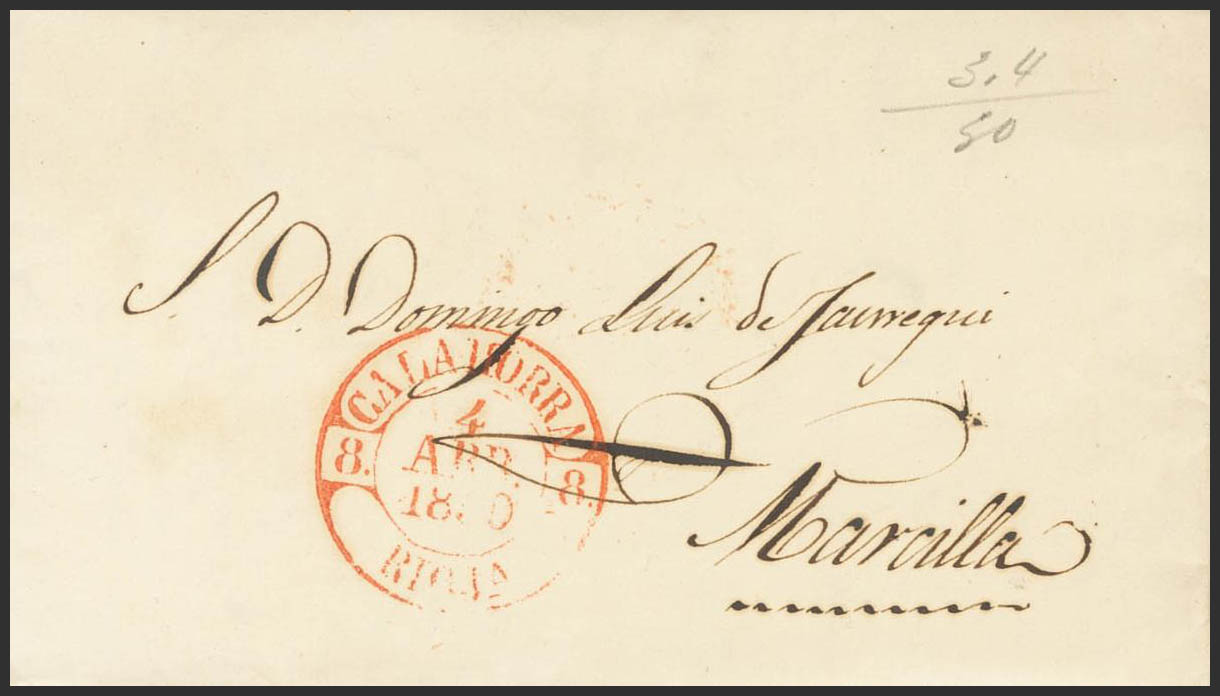 3.4
50
S. D. Domingo Luis de Jaurregui
CALAHORRA
4
ABR.
8. 8.
RIOJA
Marcilla